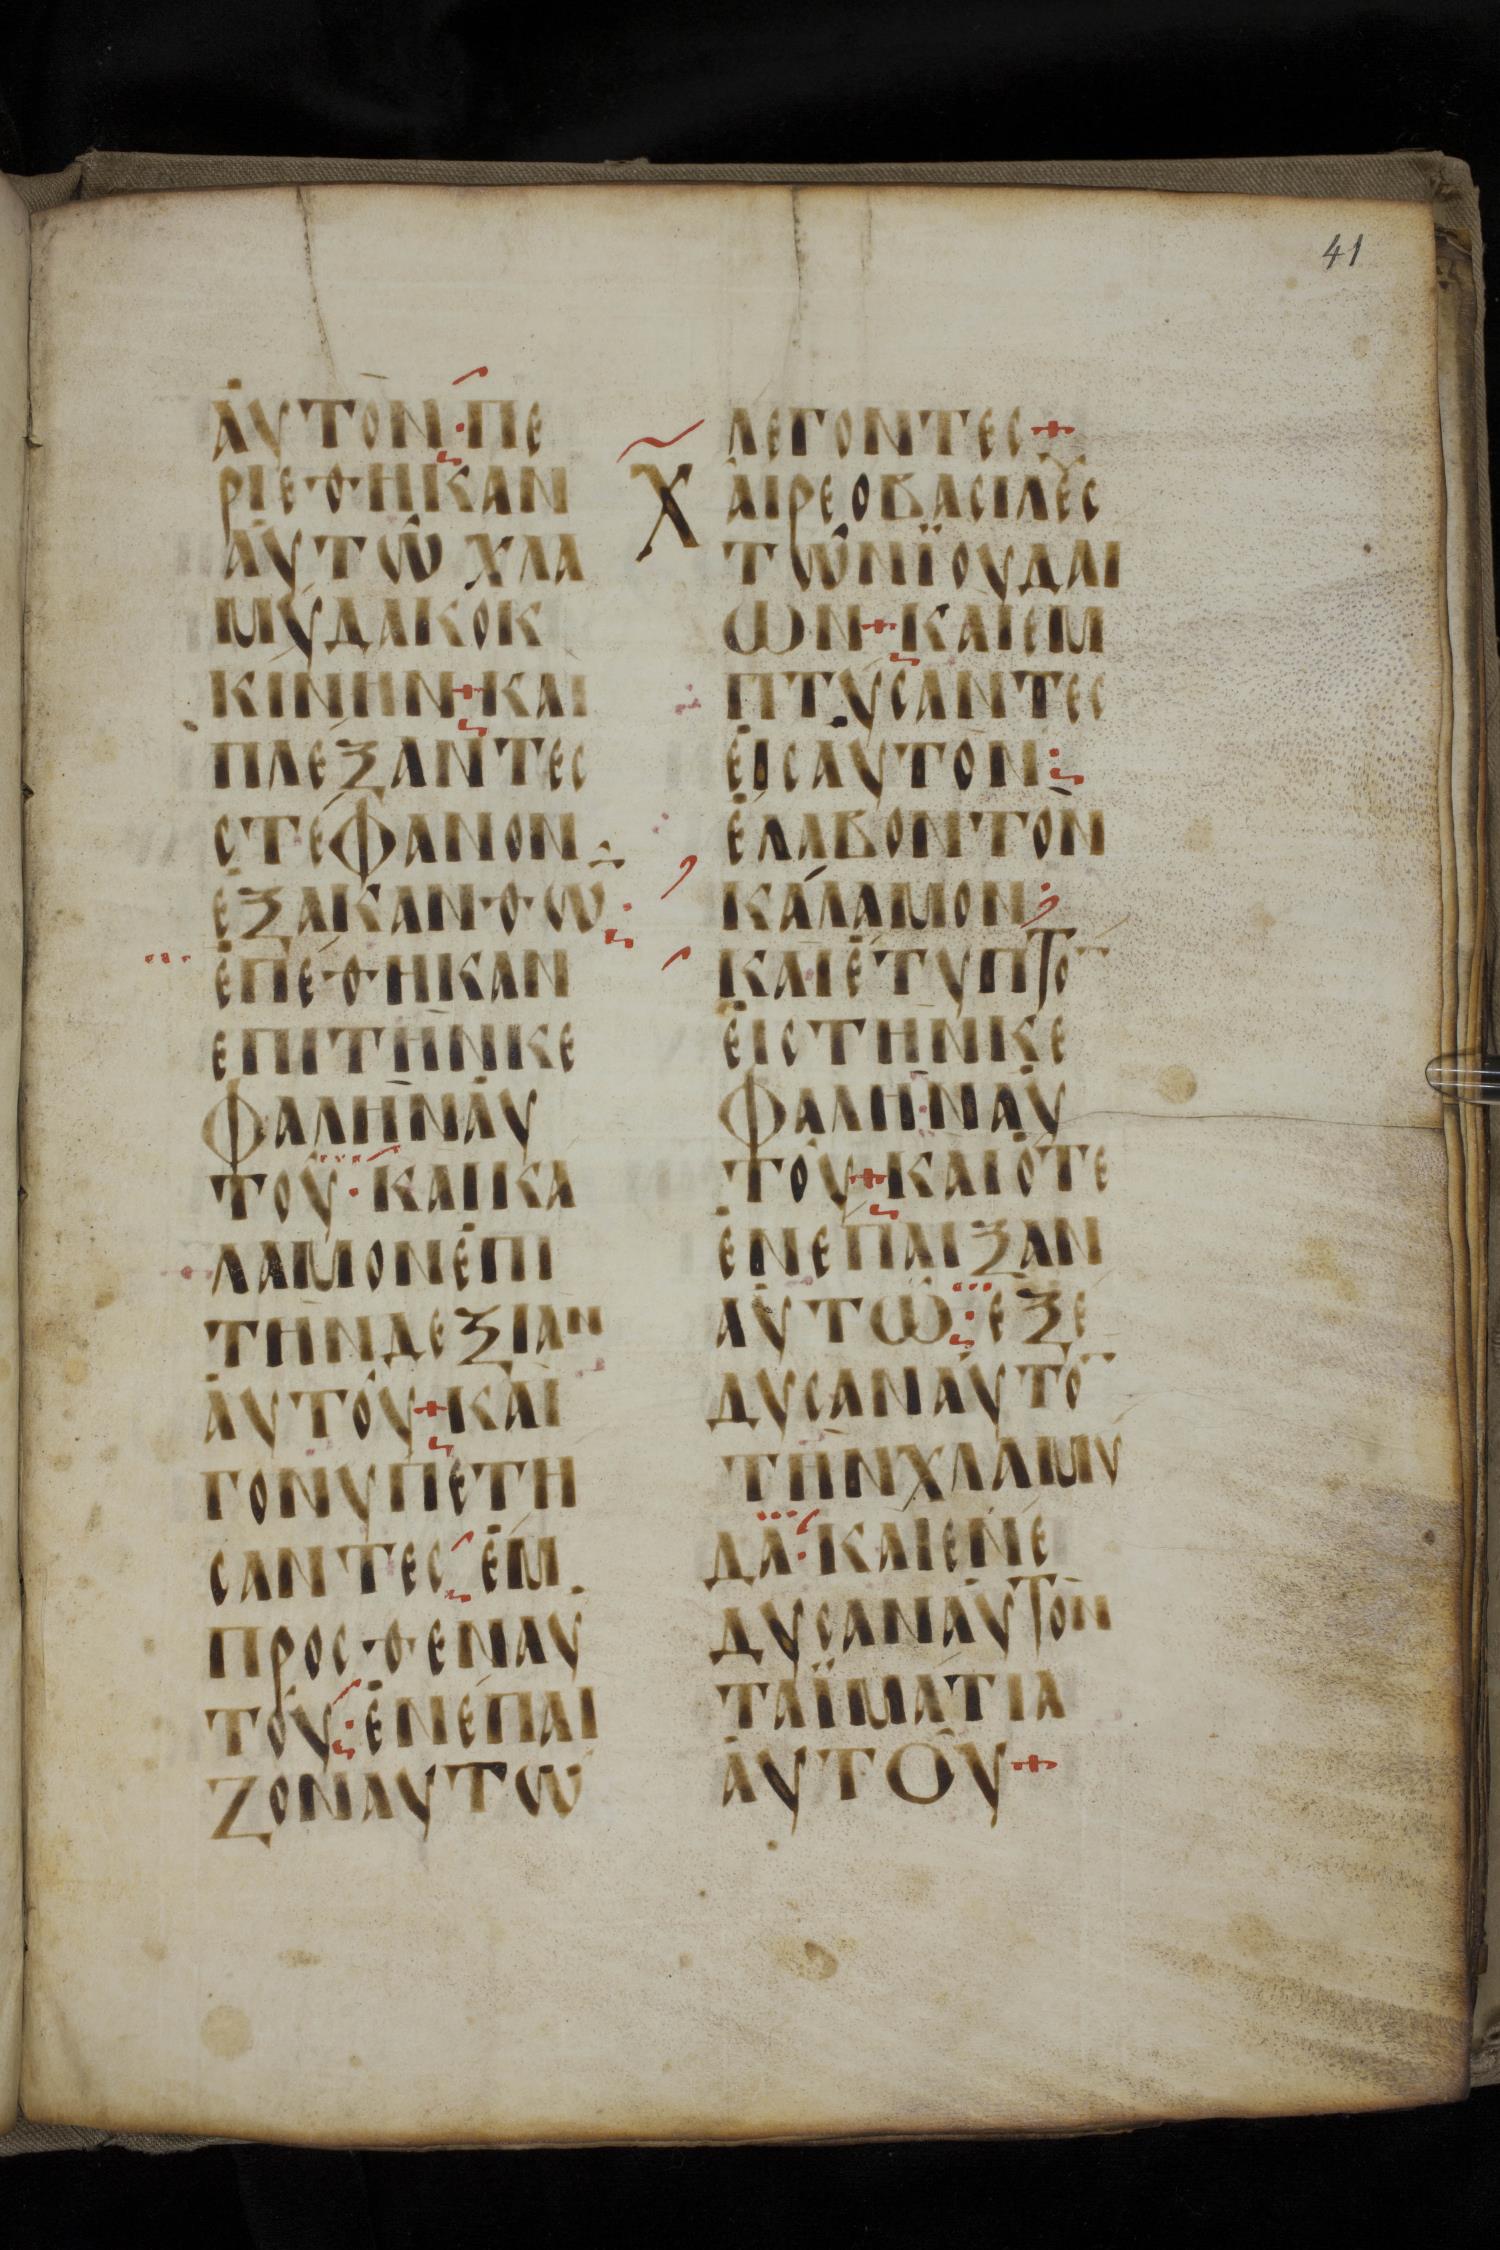 41
ἀυτὸν·πε
ριεθηκαν
ἀυτῶ χλα
μύδα κοκ
κινην+και
πλέξαντες
στέφανον
ἐξακανθω
ἐπέθηκαν
επιτὴνκε
φαλὴνἀυ
τοῦ·καικα
λαμονἐπι
τὴνδεξιαν
ἀυτοῦ+καὶ
γονυπετη
σαντες ἐμ
προσθεναυ
τοῦ:ἐνέπαι
ζοναυτω
λεγοντες+
Χἀιρεοβασιλὲς
τῶνϊουδαι
ων+καιεμ
πτύσαντες
ἐισἀυτὸν:
ἐλαβοντὸν
κάλαμον:
καιἐτυπτο̅
ἐιστὴνκε
φαλὴναὐ
τοῦ+καιὁτε
ἐνεπαιξαν
αὐτῶ:εξε
δυσανἀυτο̅
τὴνχλαμυ
δα:καιενέ
δυσανἀυτὸν
ταϊμάτια
ἀυτοῦ+